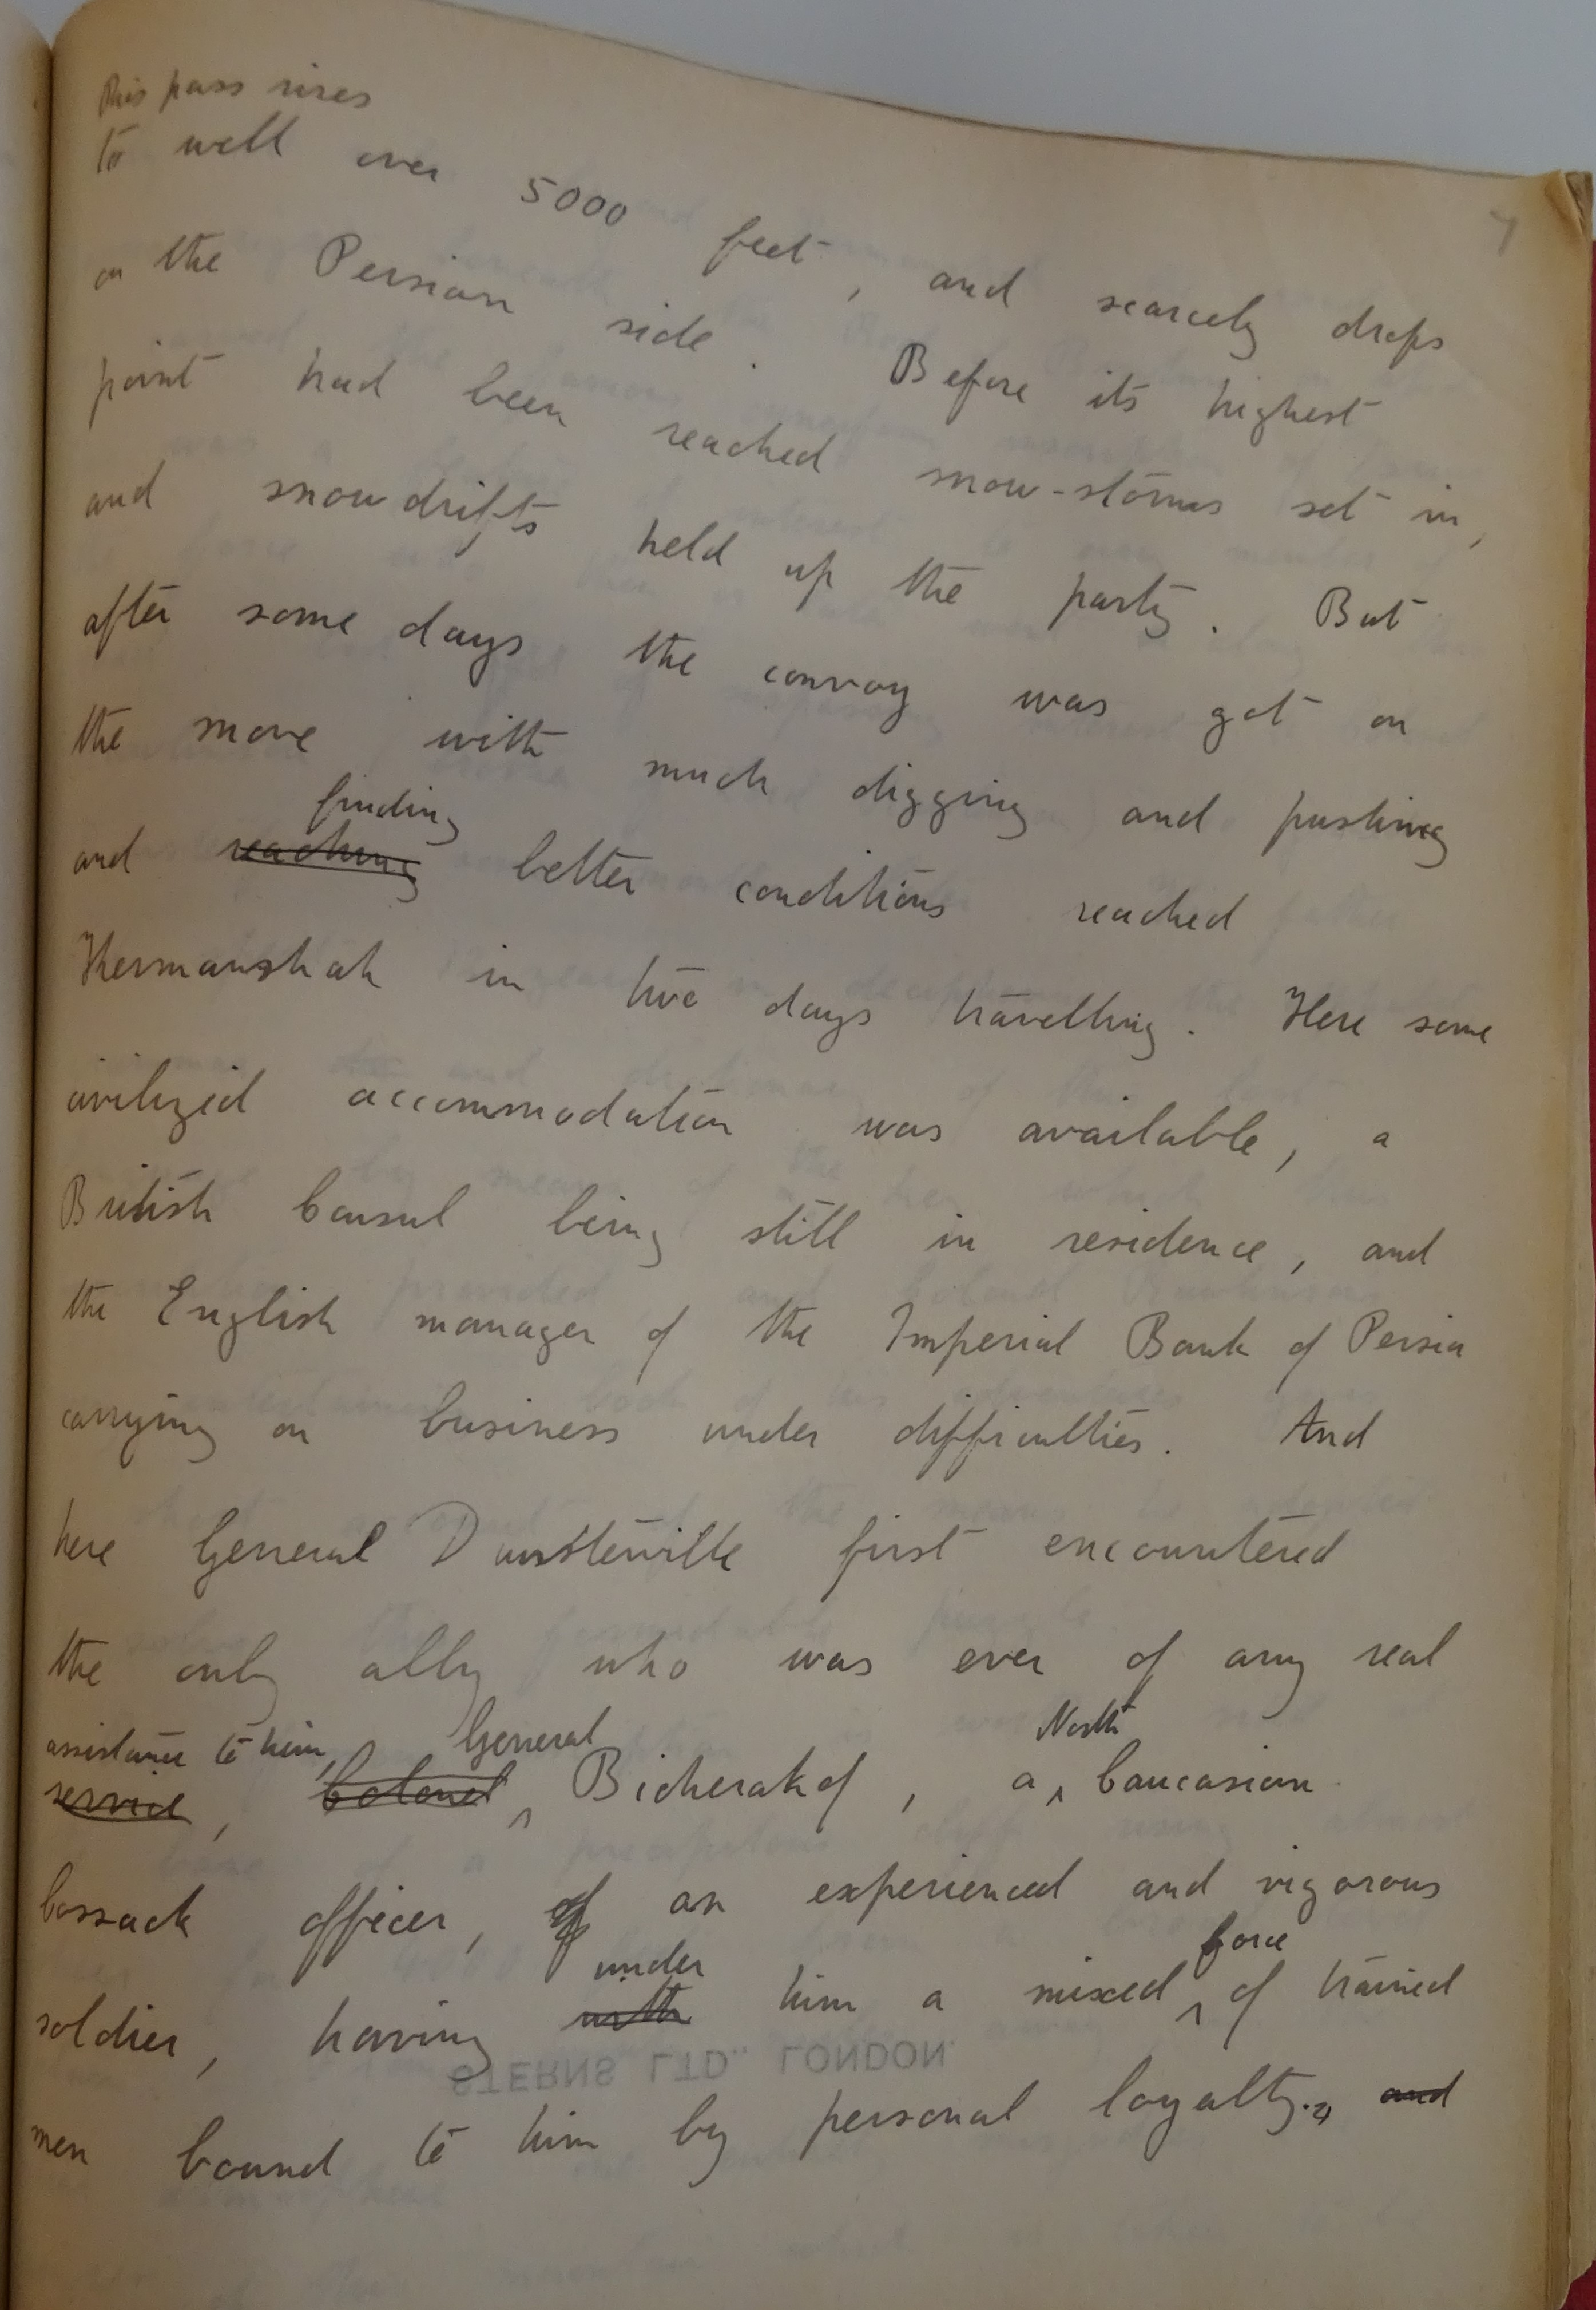 This pass rises
to well over 5000 feet, and scarcely drops
on the Persian side. Before its highest
point had been reached snow-storms set in,
and snow drifts held up the party. But
after some days the convoy was got on
the move with much digging and pushing
finding
and reaching better conditions reached
Kermanshah in two days travelling. Here some
civilized accommodation was available, a
British Consul being still in residence, and
the English manager of the Imperial Bank of Persia
carrying on business under difficulties. And
here General Dunsterville first encountered
the only ally who was ever of any real
assistance to him, General North
service, Colonel Bicherakof, a Caucasian
Cossack officer, of an experienced and vigorous
under force
soldier, having with him a mixed of trained
STERNS LTD. LONDON.
men bound to him by personal loyalty. and